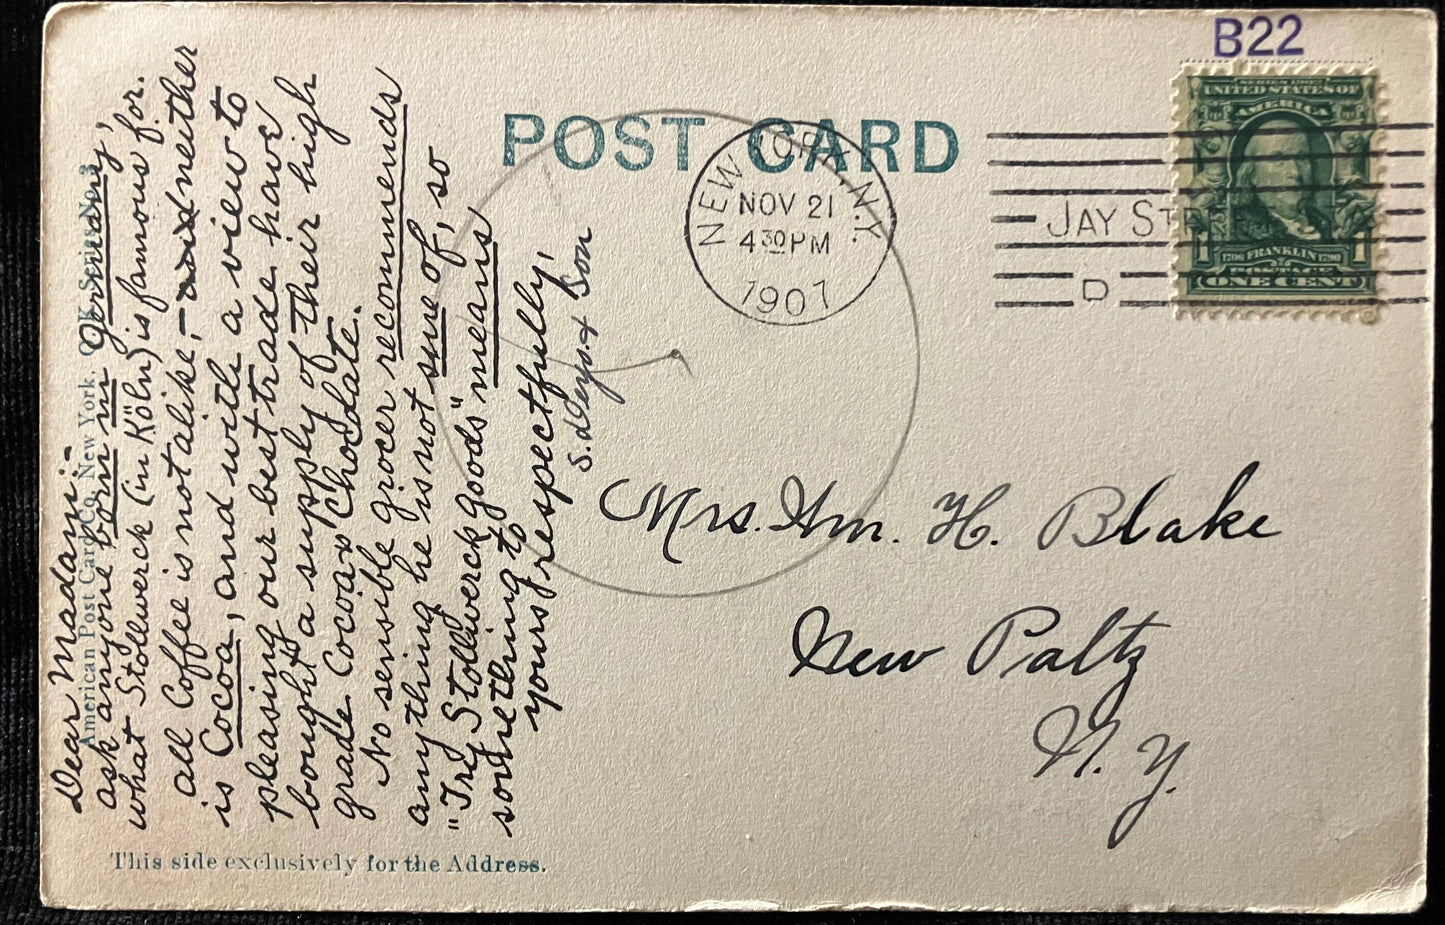 B22
POST CARD
NEW YORK, N.Y.
NOV 21
4 30 PM
1907
JAY ST
D
SERIES 1902
UNITED STATES OF
AMERICA
1 1
1706 FRANKLIN 1790
POSTAGE
ONE CENT
Dear Madam:-
ask anyone born in Germany,
what Stollwerck (in Köln) is famous for.
all Coffee is not alike,- and neither
is Cocoa, and with a view to
pleasing our best trade have
bought a supply of their high
grade Cocoa & Chocolate.
No sensible grocer recommends
anything he is not sure of, so
"Try Stollwerck goods" means
something to
yours respectfully,
S. Deyo. & Son
Mrs. Wm. H. Blake
New Paltz
N. Y.
American Post Card Co. New York. O.K. Series No. 3
This side exclusively for the Address.